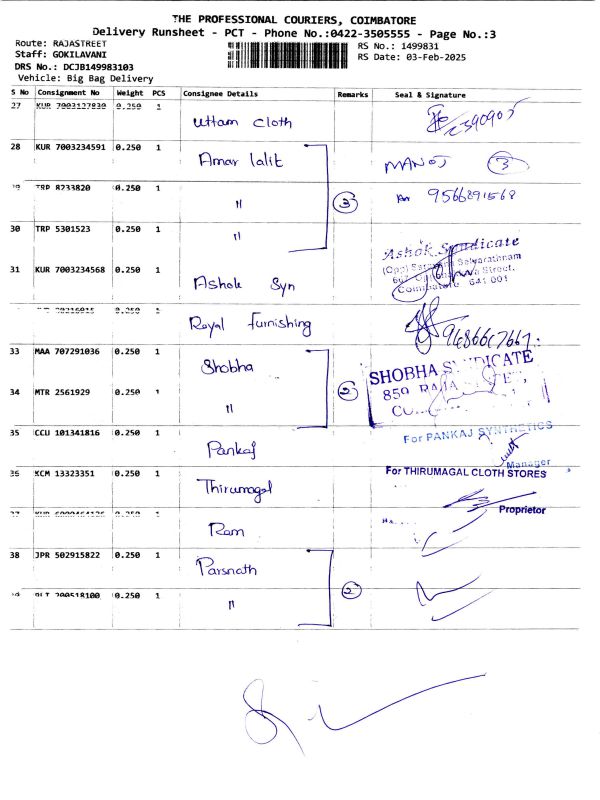 THE PROFESSIONAL COURIERS, COIMBATORE
Delivery Runsheet - PCT - Phone No.:0422-3505555 - Page No.:3
Route: RAJASTREET
RS No.: 1499831
Staff: GOKILAVANI
RS Date: 03-Feb-2025
DRS No.: DCJB149983103
Vehicle: Big Bag Delivery
S No Consignment No Weight PCS Consignee Details Remarks Seal & Signature
27 KUR 7003127830 0.250 1 Uttam Cloth
28 KUR 7003234591 0.250 1 Amar lalit MANOJ 3
TRP 8233820 0.250 1 " 3 9566891568
30 TRP 5301523 0.250 1 "
Ashok Syndicate
31 KUR 7003234568 0.250 1 Ashok Syn
Coimbatore 641 001
Royal Furnishing
33 MAA 707291036 0.250 1 Shobha
SHOBHA SYNDICATE
34 MTR 2561929 0.250 1 " 2
35 CCU 101341816 0.250 1 Pankaj For PANKAJ SYNTHETICS
Manager
36 KCM 13323351 0.250 1 Thirumagal For THIRUMAGAL CLOTH STORES
Proprietor
Ram
38 JPR 502915822 0.250 1 Parsnath
200518100 0.250 1 " 2